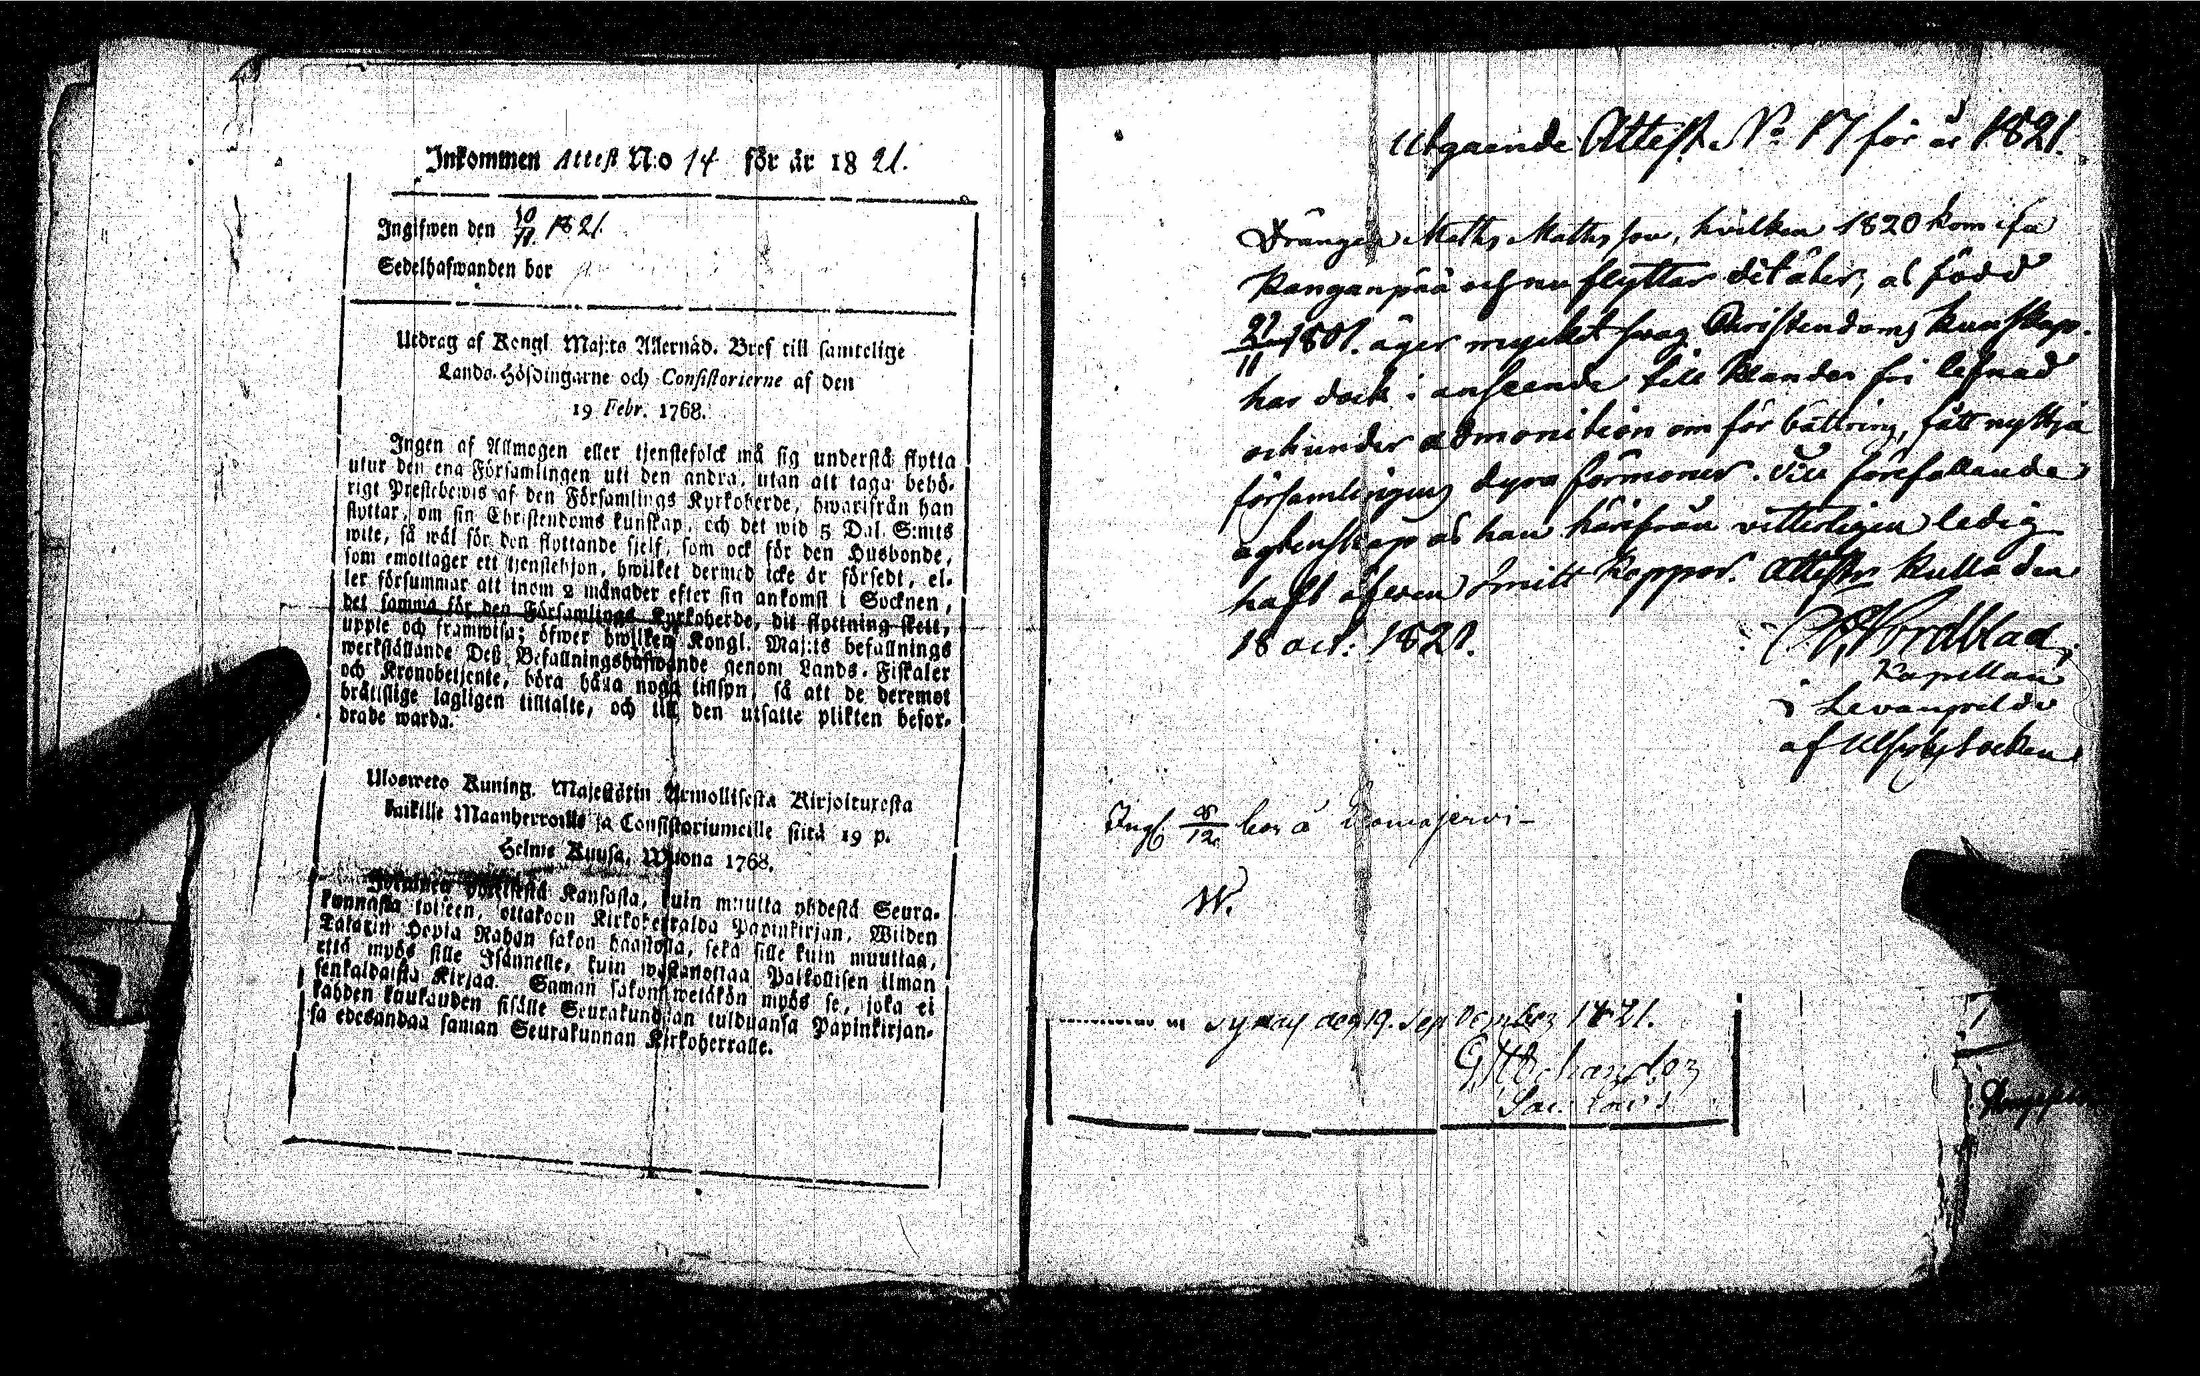 Inkommen Attest N:o 14 för år 1821.
Ingifwen den 10/11. 1821.
Sedelhafwanden bor
Utdrag af Kongl Maj:ts Allernåd. Bref till samtelige
Lands-Höfdingarne och Consistorierne af den
19 Febr. 1768.
Ingen af Allmogen eller tjenstefolck må sig understå flytta
utur den ena Församlingen uti den andra, utan att taga behö-
rigt Prestebewis af den Församlings Kyrkoherde, hwarifrån han
flyttar, om sin Christendoms kunskap, och det wid 5 Dal. S:mts
wite, så wäl för den flyttande sjelf, som ock för den Husbonde,
som emottager ett tjenstehjon, hwilket dermed icke är försedt, el-
ler försummar att inom 2 månader efter sin ankomst i Socknen,
det samma för den Församlings Kyrkoherde, dit flyttning skett,
uppte och framwisa; öfwer hwilken Kongl. Maj:ts befallnings
werkställande Deß Befallningshafwande genom Lands-Fiskaler
och Kronobetjente, böra bära noga tillsyn, så att de deremot
brättslige lagligen tilltalte, och till den utsatte plikten befor-
drade warda.
Ulosweto Kuning. Majestätin Armollisesta Kirjoituxesta
kaikille Maanherroille ja Consistoriumeille siitä 19 p.
Helme Kuusa, Wuona 1768.
Kansasta, kuin muutta yhdestä Seura-
kunnasta toiseen, ottakoon Kirkoherralda Papinkirjan, Wiiden
Talarin Hopia Rahan sakon haastolla, sekä sille kuin muuttaa,
että myös sille Isännelle, kuin wastanottaa Palkollisen ilman
senkaldaista Kirjaa. Saman sakon wetäkön myös se, joka ei
kahden kuukauden sisälle Seurakundaan tulduansa Papinkirjan-
sa edesandaa saman Seurakunnan Kirkoherralle.
Utgaende Attest No 17 för år 1821.
Drängen Matts Matts son, hvilken 1820 kom ifrån
Kanganpää och nu flyttar dit åter, är född
27/11 1801. äger mycket svag Christendoms kunskap.
har dock i anseende till klander fri lefnad
och under admonition om för bättring, fått nyttja
församlingens dyra förmoner. Till förefallande
ägtenskap är han härifrån vitterligen ledig
haft äfven Smitt Koppor. Attestr Kulla den
18 oct: 1821.
Nordblad,
Kapellan
i
af Ulfsby Socken
Ingf. 8/12 bor å
W.
den 19. September 1821.